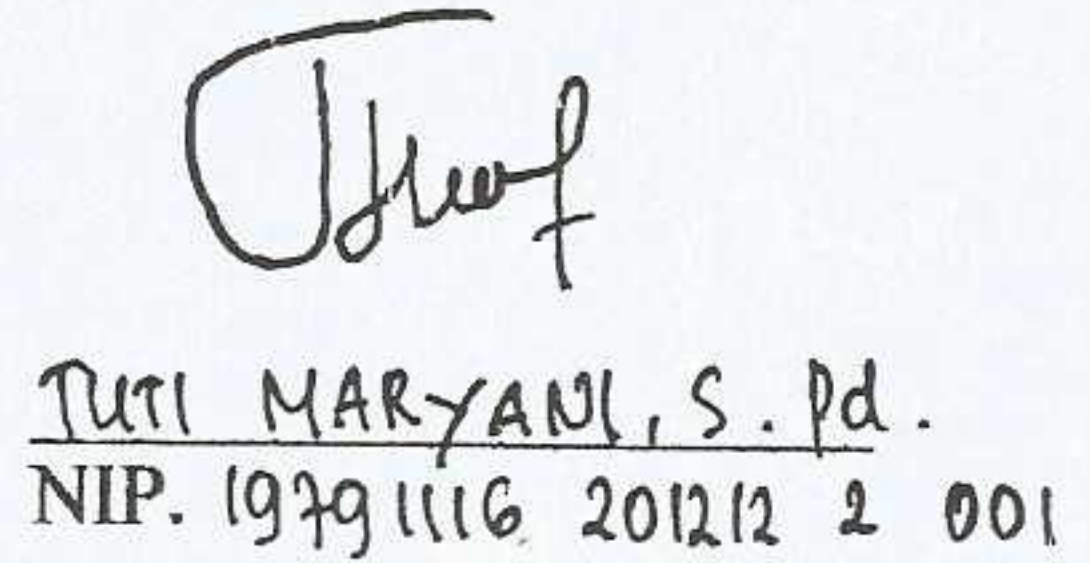 TUTI MARYANI, S. Pd.
NIP. 19791116 201212 2 001